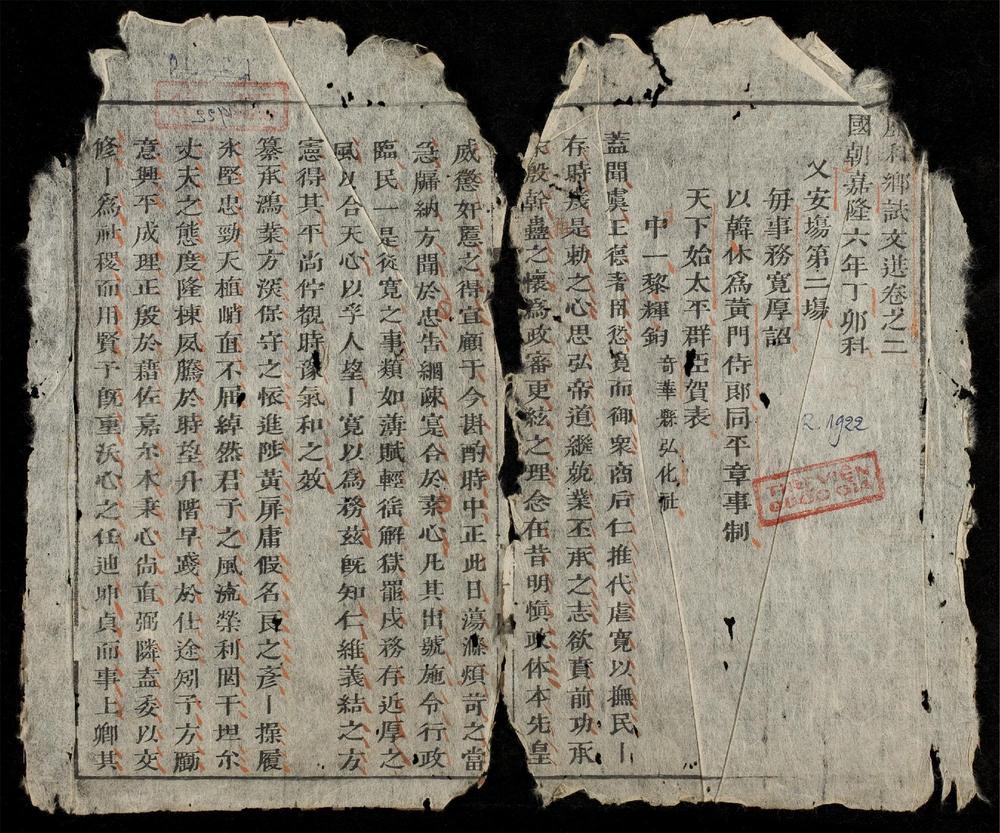 科鄉試文選卷之二
國朝嘉隆六年丁卯科
乂安塲第二塲
毎事務寬厚詔
以韓休爲黃門侍郎同平章事制
天下始太平群臣賀表
中一黎輝鈞 奇華縣弘化社
蓋聞虞王德著罔愆寬而御衆商后仁推代虐寛以撫民丨
存時是勅之心思弘帝道繼兢業丕承之志欲賁前功承
殷幹蠱之懷爲政審更絃之理念在昔明愼政体本先皇
威懲奸慝之得宣顧于今斟酌時中正此日蕩滌煩苛之當
急牖納方聞於忠告綱疎寔合於素心凡其出號施令行政
臨民一是從寛之事類如薄賦輕徭解獄罷戍務存近厚之
風以合天心以孚人望丨寛以爲務茲旣知仁維義結之方
憲得其平尚佇観時豫氣和之效
纂承鴻業方深保守之懷進陟黃屏庸假名良之彦丨操履
氷堅忠勁天植峭直不屈綽然君子之風流榮利罔干坦尔
丈夫之態度隆棟夙騰於時望升階早踐於仕途矧予方勵
意興平成理正殷於藉佐嘉尔本秉心尚直弼隣盖委以交
修丨爲社稷而用賢予旣重沃心之任迪卬貞而事上卿其
R. 1922
THƯ VIỆN
QUỐC GIA